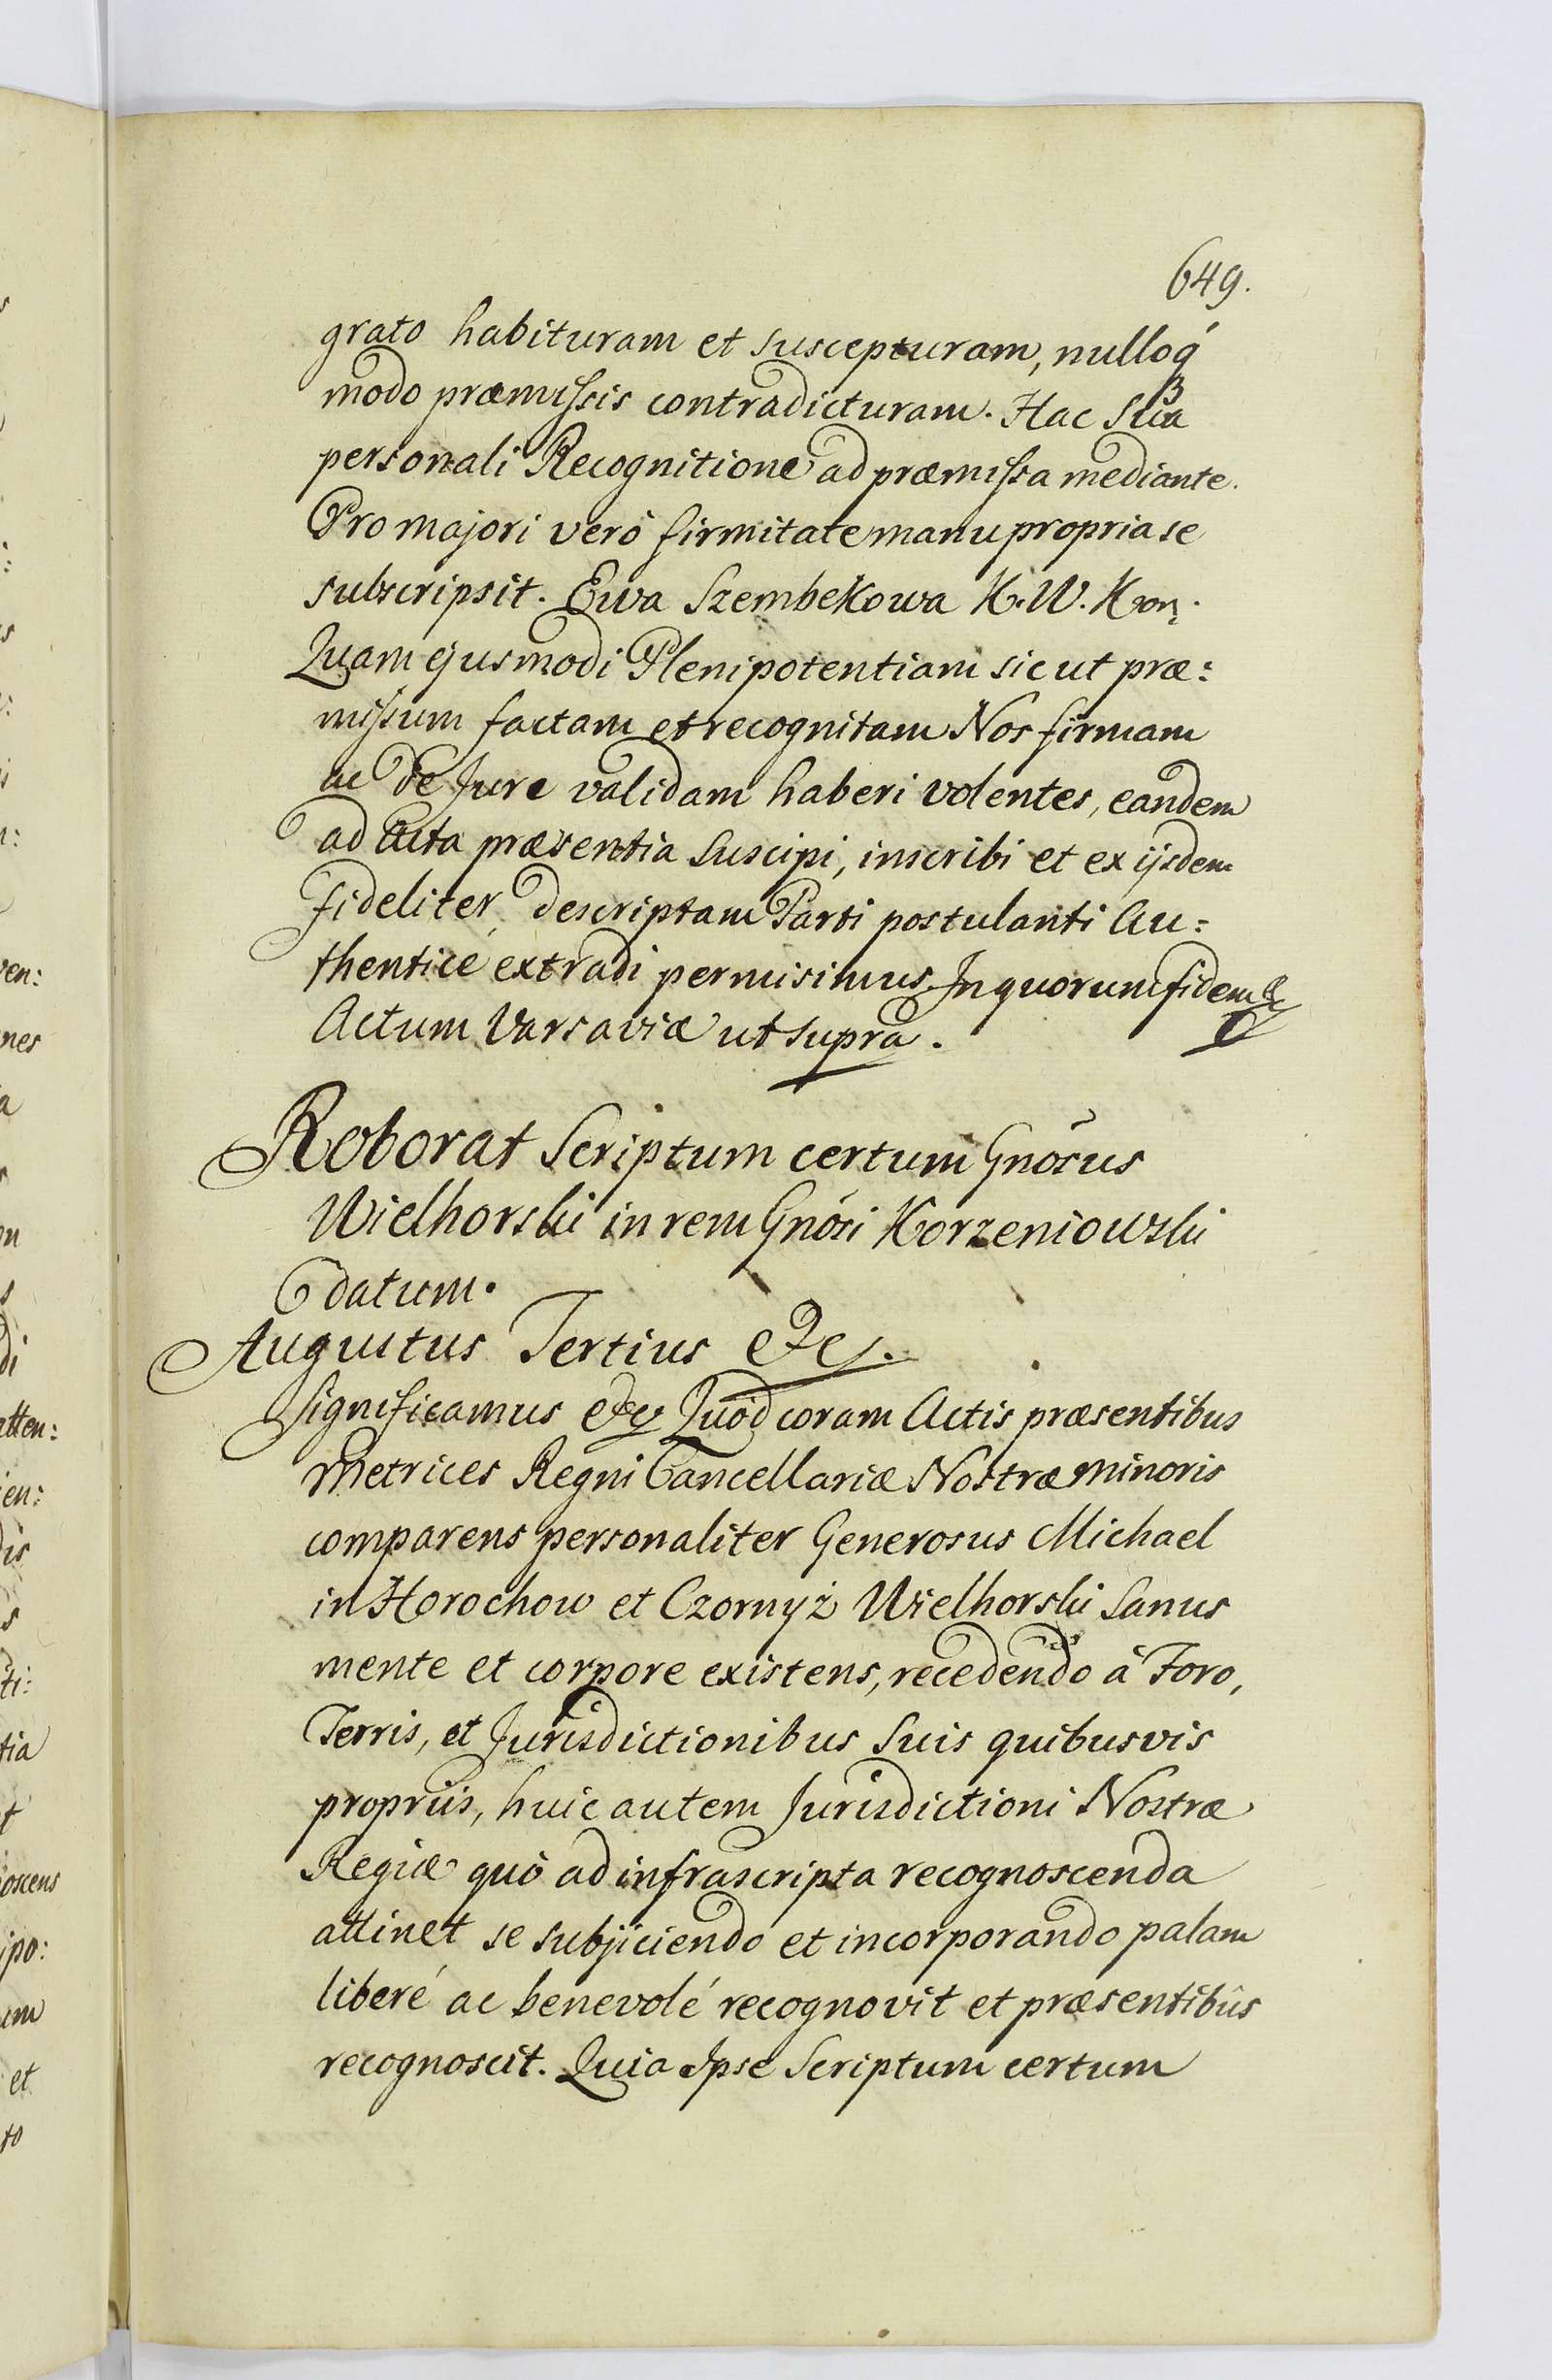 649.
grato habituram et suscepturam, nulloq́
modo præmissis contradicturam. Hac Sua
personali Recognitione ad præmissa mediante.
Pro majori verò firmitate manu propria se
subscripsit. Ewa Szembekowa K. W. Kor:
Quam ejusmodi Plenipotentiam sicut præ:
missum factam et recognitam Nos firmam
ac de Jure validam haberi volentes, eandem
ad Acta præsentia Suscipi, inscribi et ex ijsdem
fideliter descriptam Parti postulanti Au:
thenticè extradi permisimus. In quorum fidem &c
Actum Varsaviæ ut supra.
Roborat Scriptum certum Gnõsus
Wielhorski in rem Gnõsi Korzeniowski
datum.
Augustus Tertius &c.
Significamus &c Quòd coram Actis præsentibus
Metrices Regni Cancellariæ Nostræ Minoris
comparens personaliter Generosus Michael
in Horochow et Czornyż Wielhorski Sanus
mente et corpore existens, recedendo à Foro,
Terris, et Jurisdictionibus Suis quibusvis
proprijs, huic autem Jurisdictioni Nostræ
Regiæ quò ad infrascripta recognoscenda
attinet se subjiciendo et incorporando palam
liberé ac benevolé recognovit et præsentibus
recognoscit. Quia Ipse Scriptum certum